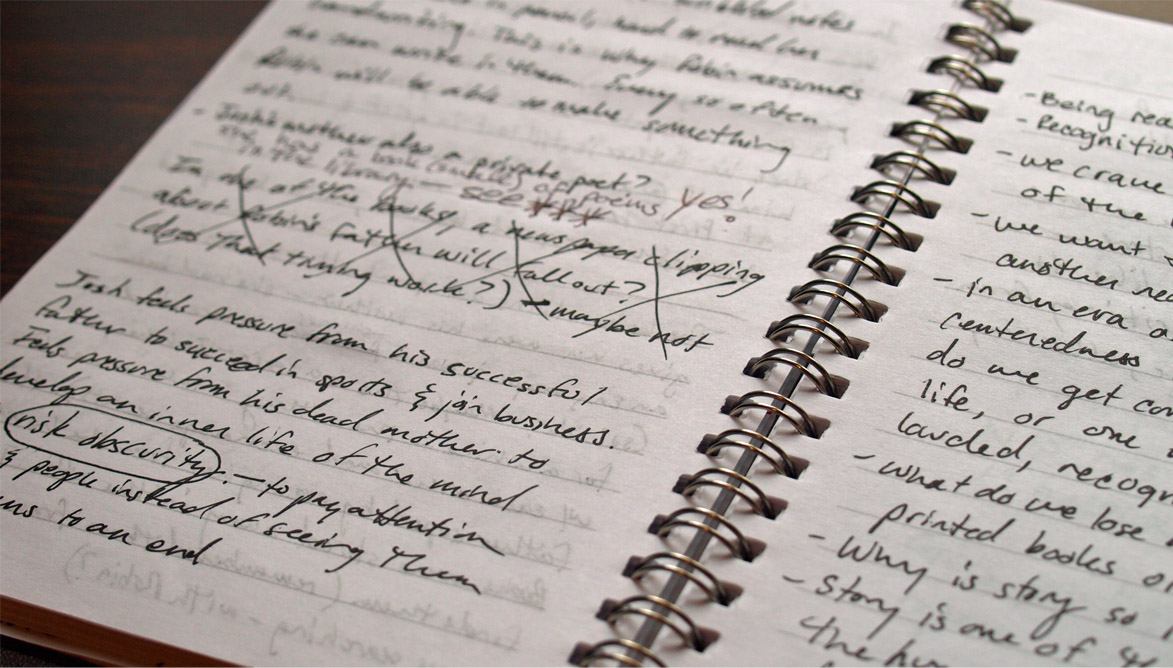 notes
in pencil, need to read his
. This is why Robin assumes
he can write in them. Every so often
Robin will be able to make something
out.
- Josh's mother also a private poet? yes!
She has a book (                ) of poems
in the library. — see ***
In one of the books, a newspaper clipping
about Robin's father will fall out?
(does that timing work?) * maybe not
Josh feels pressure from his successful
father to succeed in sports & join business.
Feels pressure from his dead mother to
develop an inner life of the mind
risk obscurity. — to pay attention
& people instead of seeing them
to an end
- Being
- Recognition
- we crave
of the
- we want
another
- in an era
centeredness
do we get
life, or one
lauded,
- What do we lose
printed books
- Why is story so
- Story is one of
the